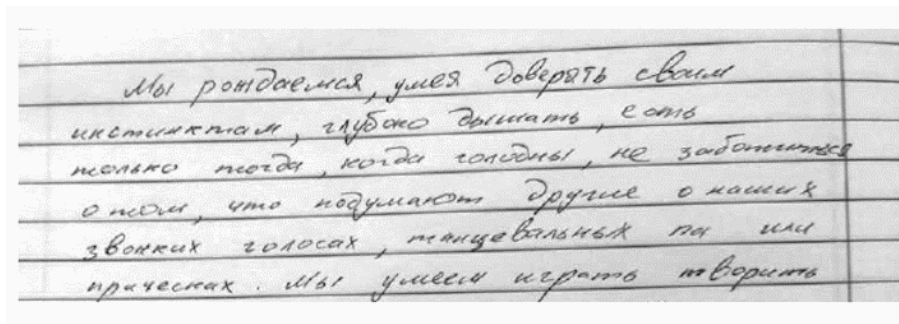 Мы рождаемся, умея доверять своим
инстинктам, глубоко дышать, есть
только тогда, когда голодны, не заботиться
о том, что подумают другие о наших
звонких голосах, танцевальных па или
прическах. Мы умеем играть творить